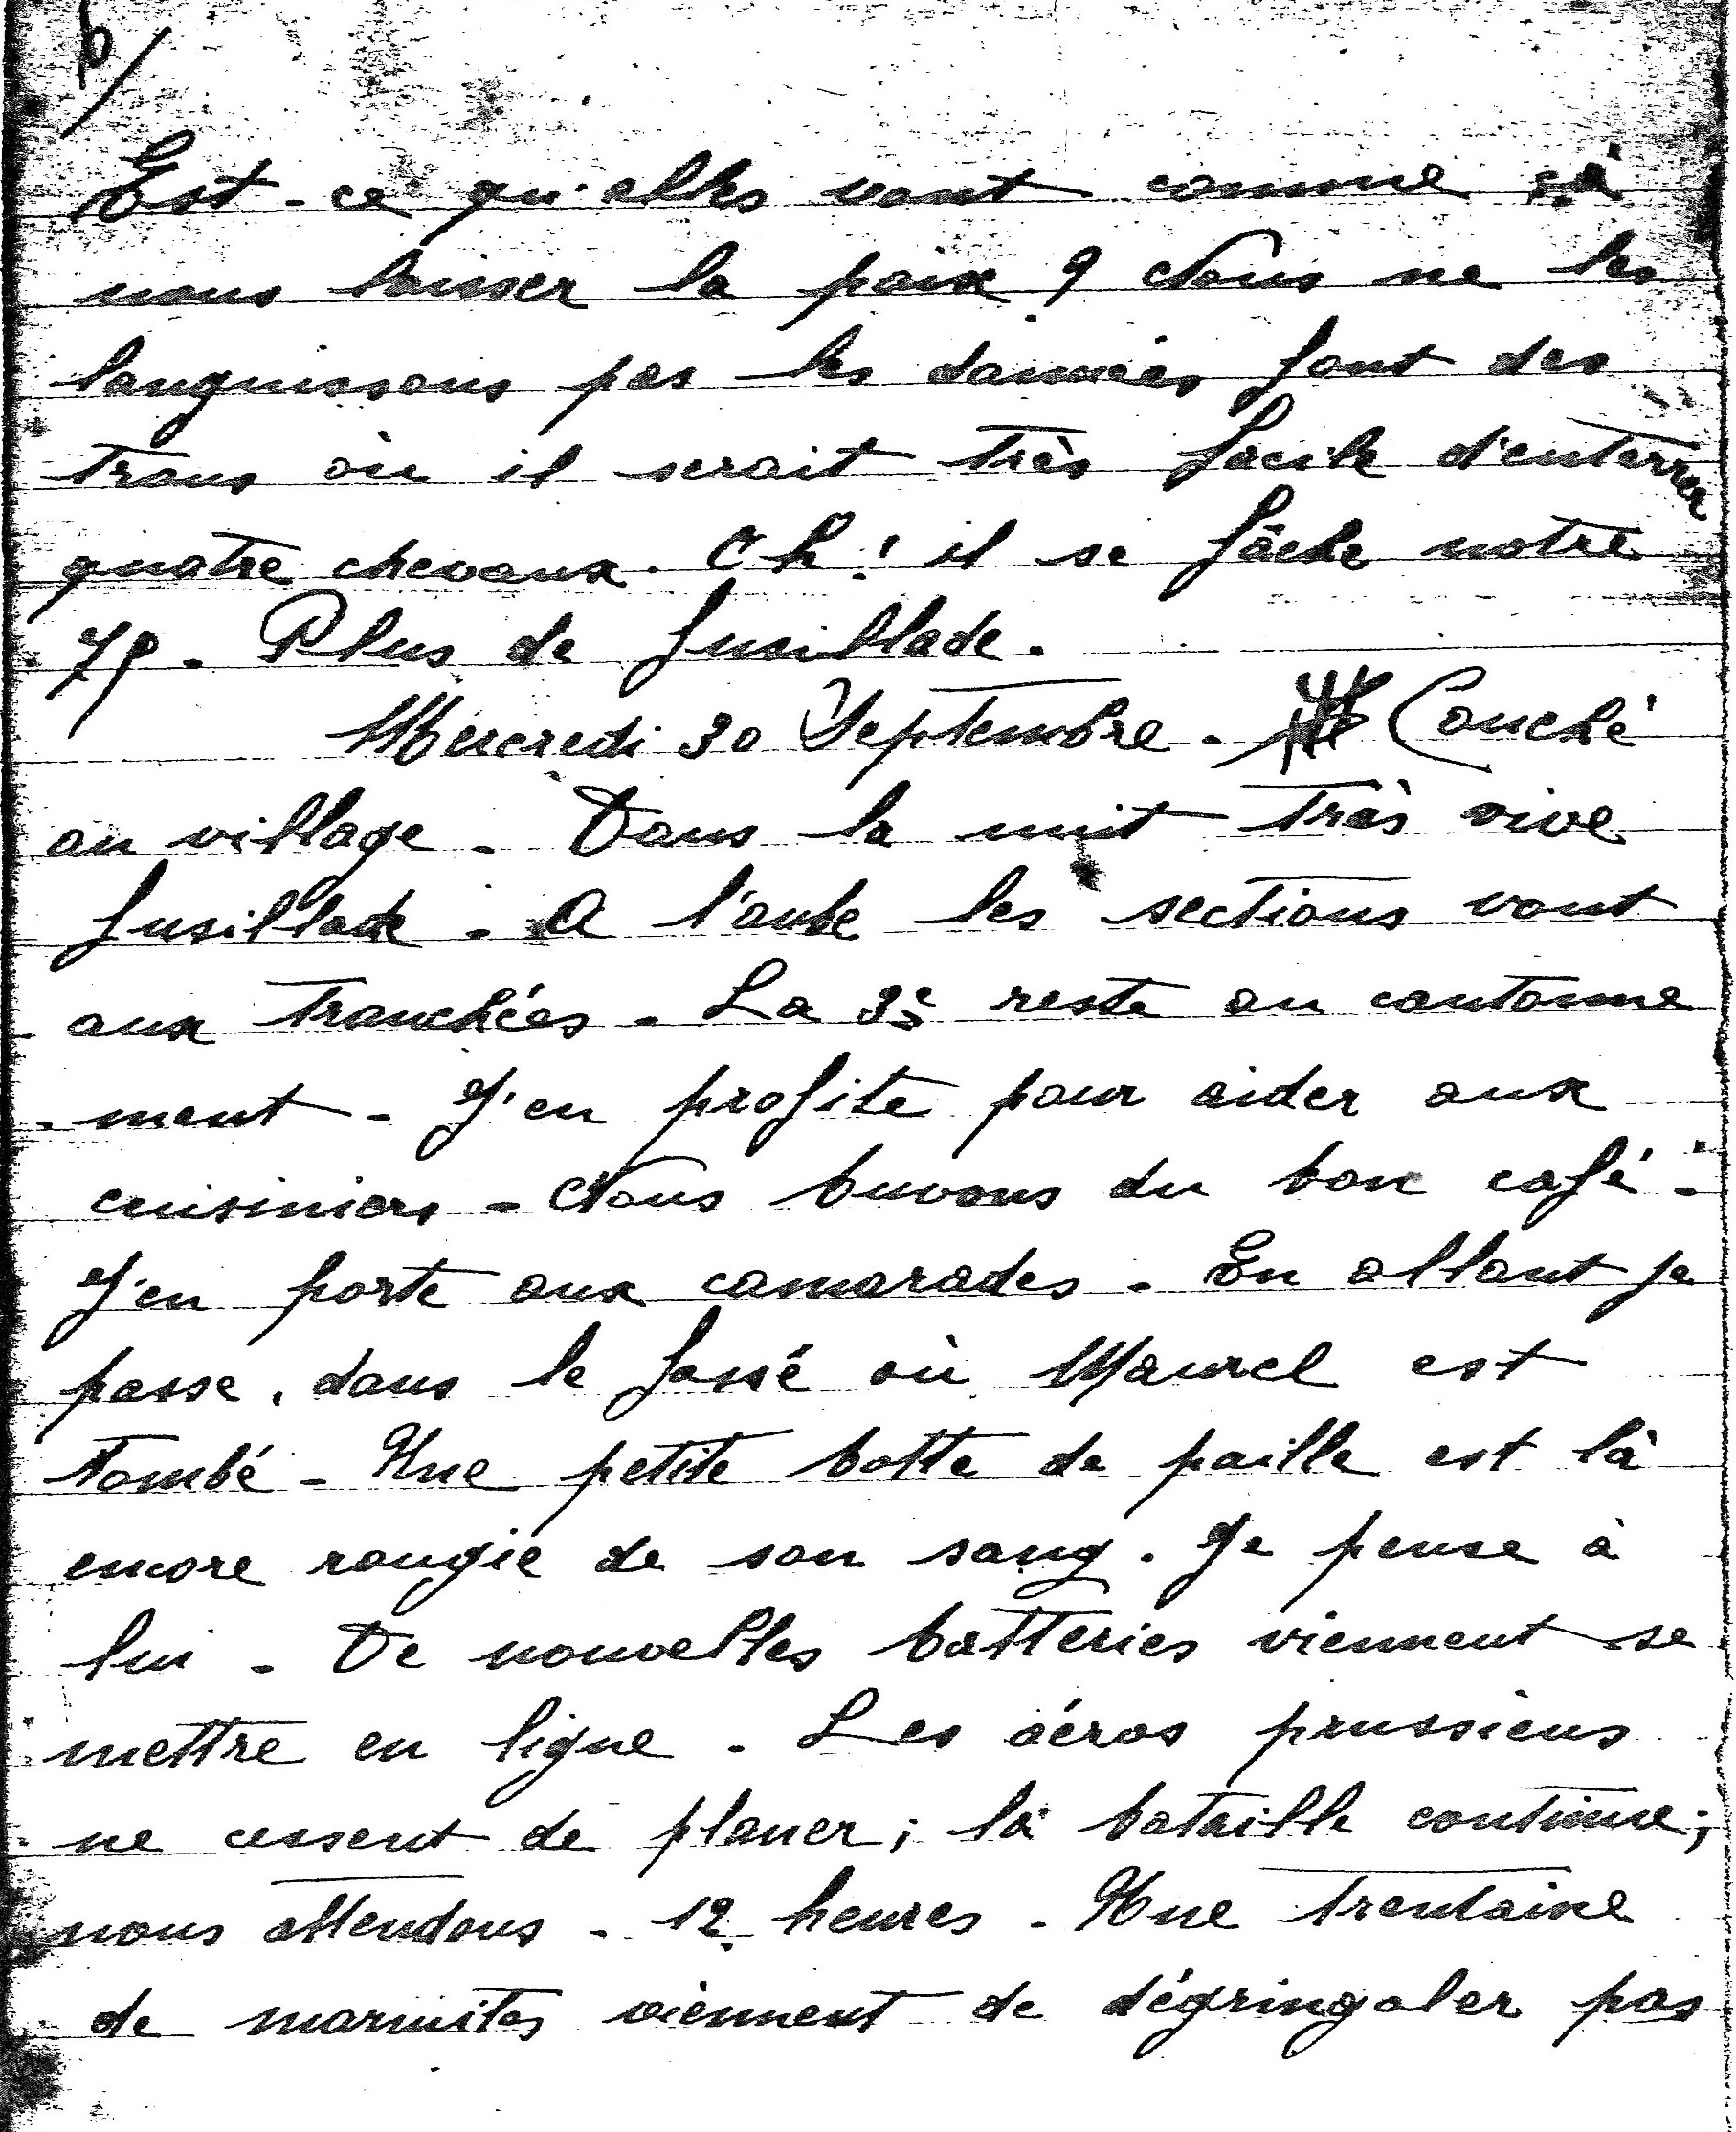 Est-ce qu'elles vont comme çà
nous laisser la paix ? Nous ne les
languissons pas les damnées font des
trous où il serait très facile d'enterrer
quatre chevaux. Oh ! il se fâche notre
75. Plus de fusillade.
Mercredi 30 Septembre - Couché
au village - Dans la nuit très vive
fusillade - A l'aube les sections vont
aux tranchées - La 3e reste au cantonne
-ment - J'en profite pour aider aux
cuisiniers - Nous buvons du bon café -
J'en porte aux camarades - En allant je
passe, dans le fossé où Maurel est
tombé - Une petite botte de paille est là
encore rougie de son sang. Je pense à
lui - De nouvelles batteries viennent se
mettre en ligne - Les aéros prussiens
ne cessent de planer ; la bataille continue ;
nous attendons - 12 heures - Une trentaine
de marmites viennent de dégringoler pas